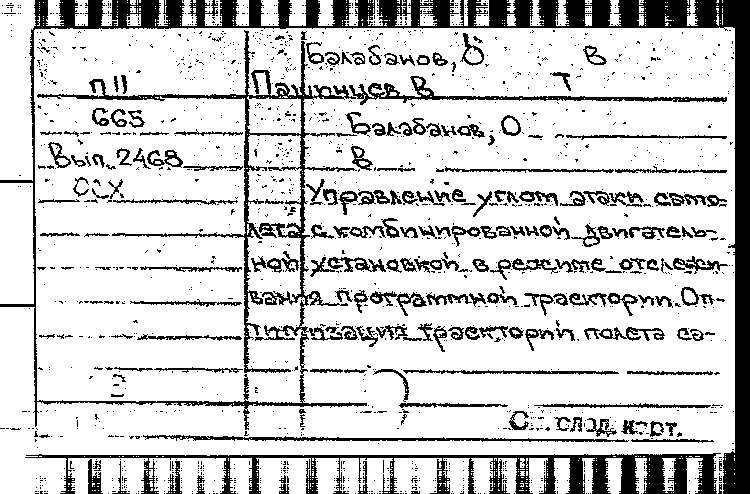 Балабанов, О В
П11 Пашинцев, В Т
665 Балабанов, О
Вып. 2468 В
ОСХ Управление углом атаки само-
лета с комбинированной двигатель-
ной установкой в режиме отслежи-
вания программной траектории. Оп-
тимизация траекторий полета са-
2
См. след. карт.